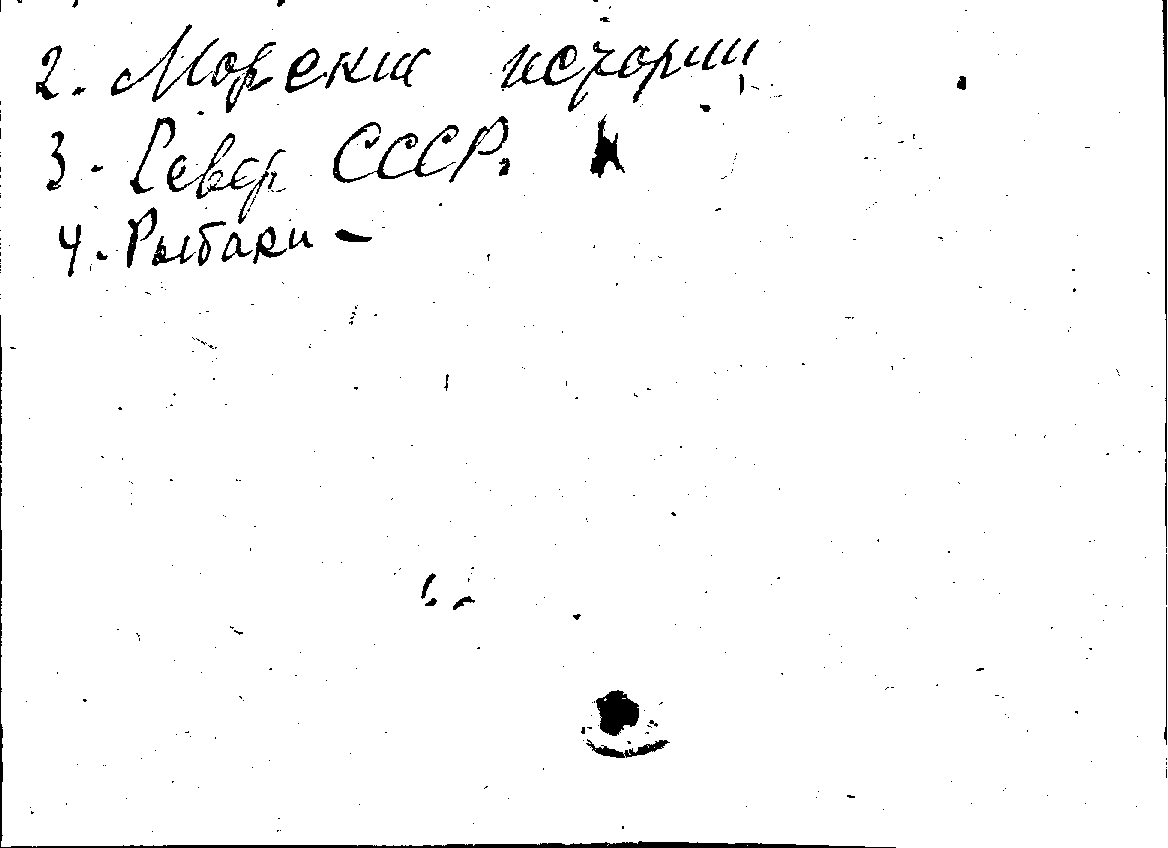 2. Морские истории
3. Север СССР.
4. Рыбаки –